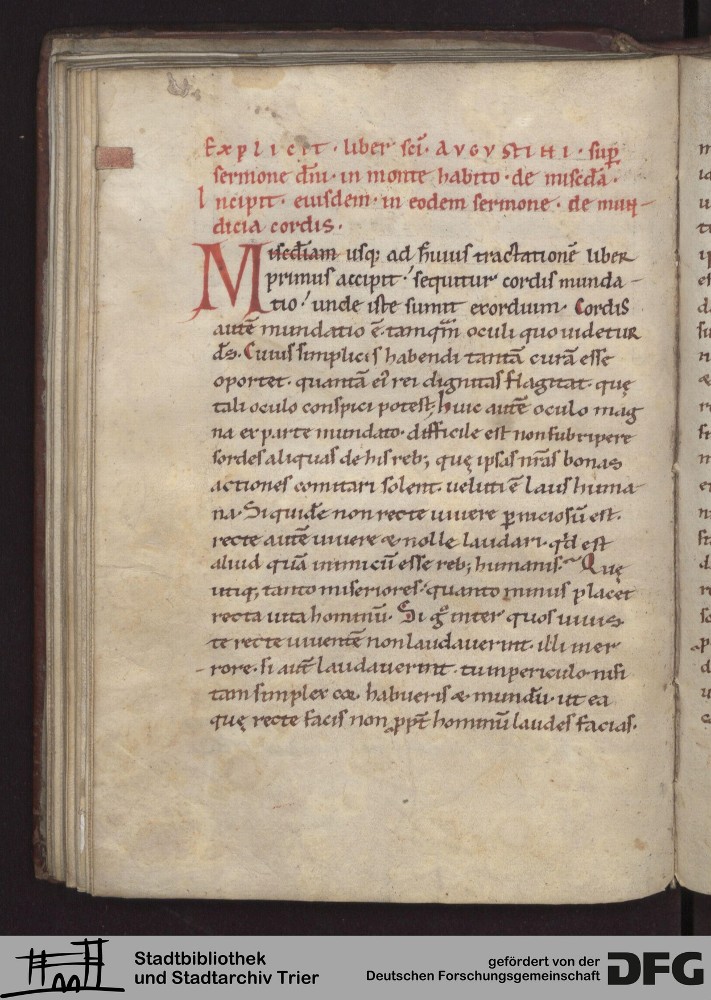 Explicit · liber scī · AVGVSTINI · sup̄
sermone dn̄i · in monte habito · de mis̄cdā ·
Incipit · eiusdem · in eodem sermone · de mun-
dicia cordis ·
Mis̄cdiam usq; ad huius tractationē liber
primus accipit · sequitur cordis munda-
tio · unde iste sumit exordium · Cordis
autē mundatio ē · tamqm̄ oculi quo uidetur
ds̄ · Cuius simplicis habendi tantā curā esse
oportet · quantā ei' rei dignitas flagitat · quę
tali oculo conspici potest; huic autē oculo mag
na ex parte mundato · difficile est non subripere
sordes aliquas de his reb; quę ipsas nr̄as bonas
actiones comitari solent · ueluti ē laus huma-
na · Siquidē non recte uiuere pniciosū est ·
recte autē uiuere & nolle laudari · qd̄ est
aliud quā inimicū esse reb; humanis · Quę
utiq; tanto miseriores · quanto minus placet
recta uita hominū · Si gͦ inter quos uiuis
te recte uiuentē non laudauerint · illi in er
rore · si aut̄ laudauerint · tu in periculo · nisi
tam simplex cor habueris & mundū · ut ea
quę recte facis non ppt̄ hominū laudes facias ·
Stadtbibliothek
und Stadtarchiv Trier
gefördert von der
Deutschen Forschungsgemeinschaft
DFG